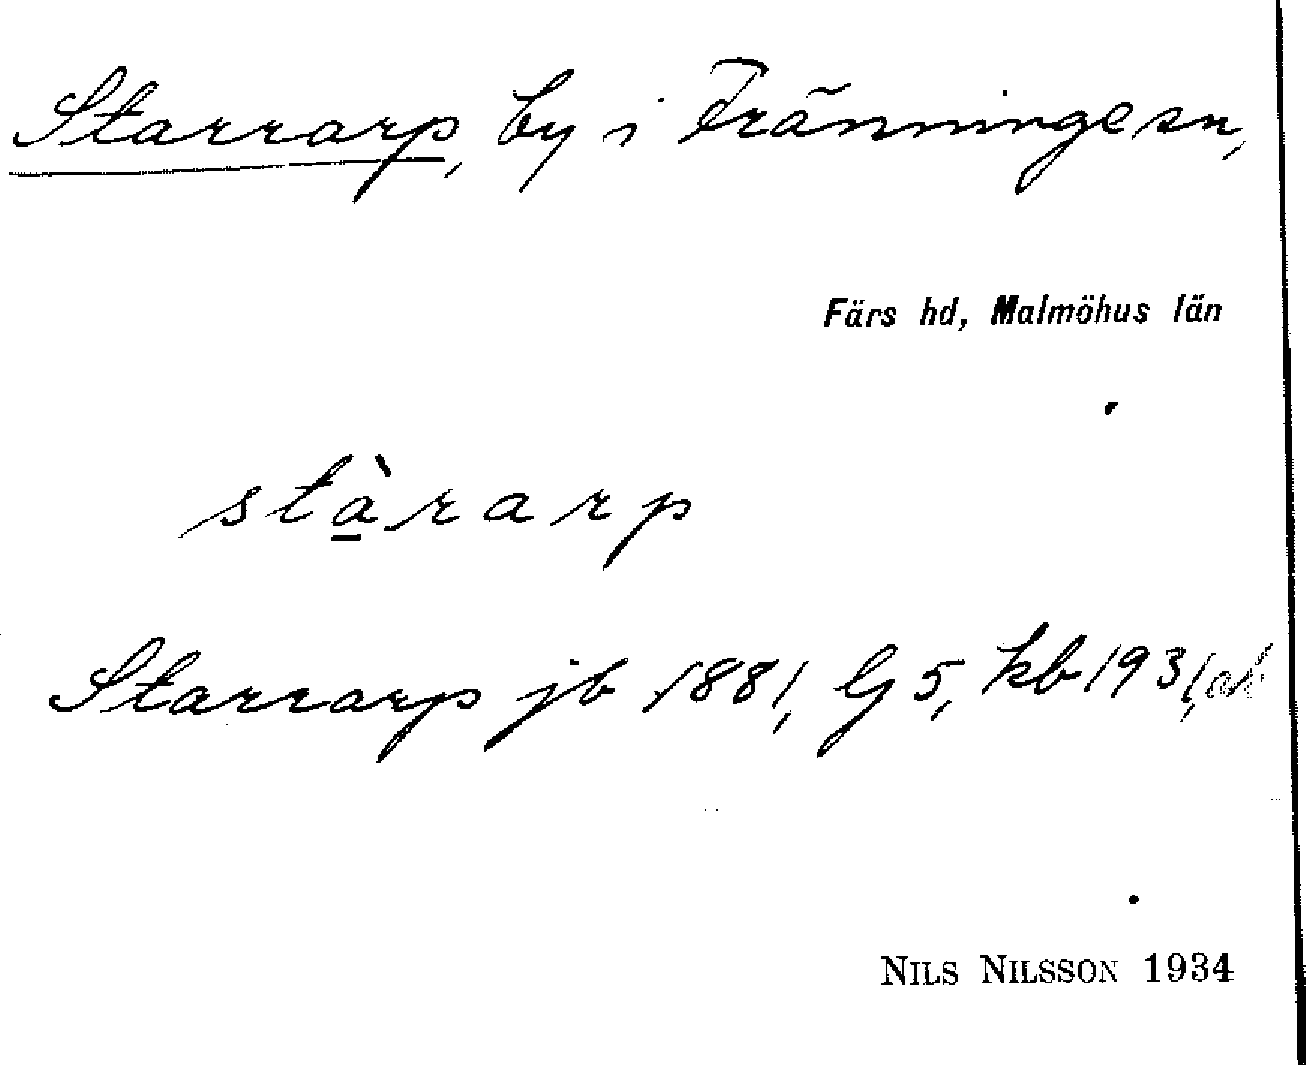 Starrarp, by i Fränninge sn,
Färs hd, Malmöhus län
stàrarp
Starrarp jb 1881, G 5, kb 1931,
NILS NILSSON 1934